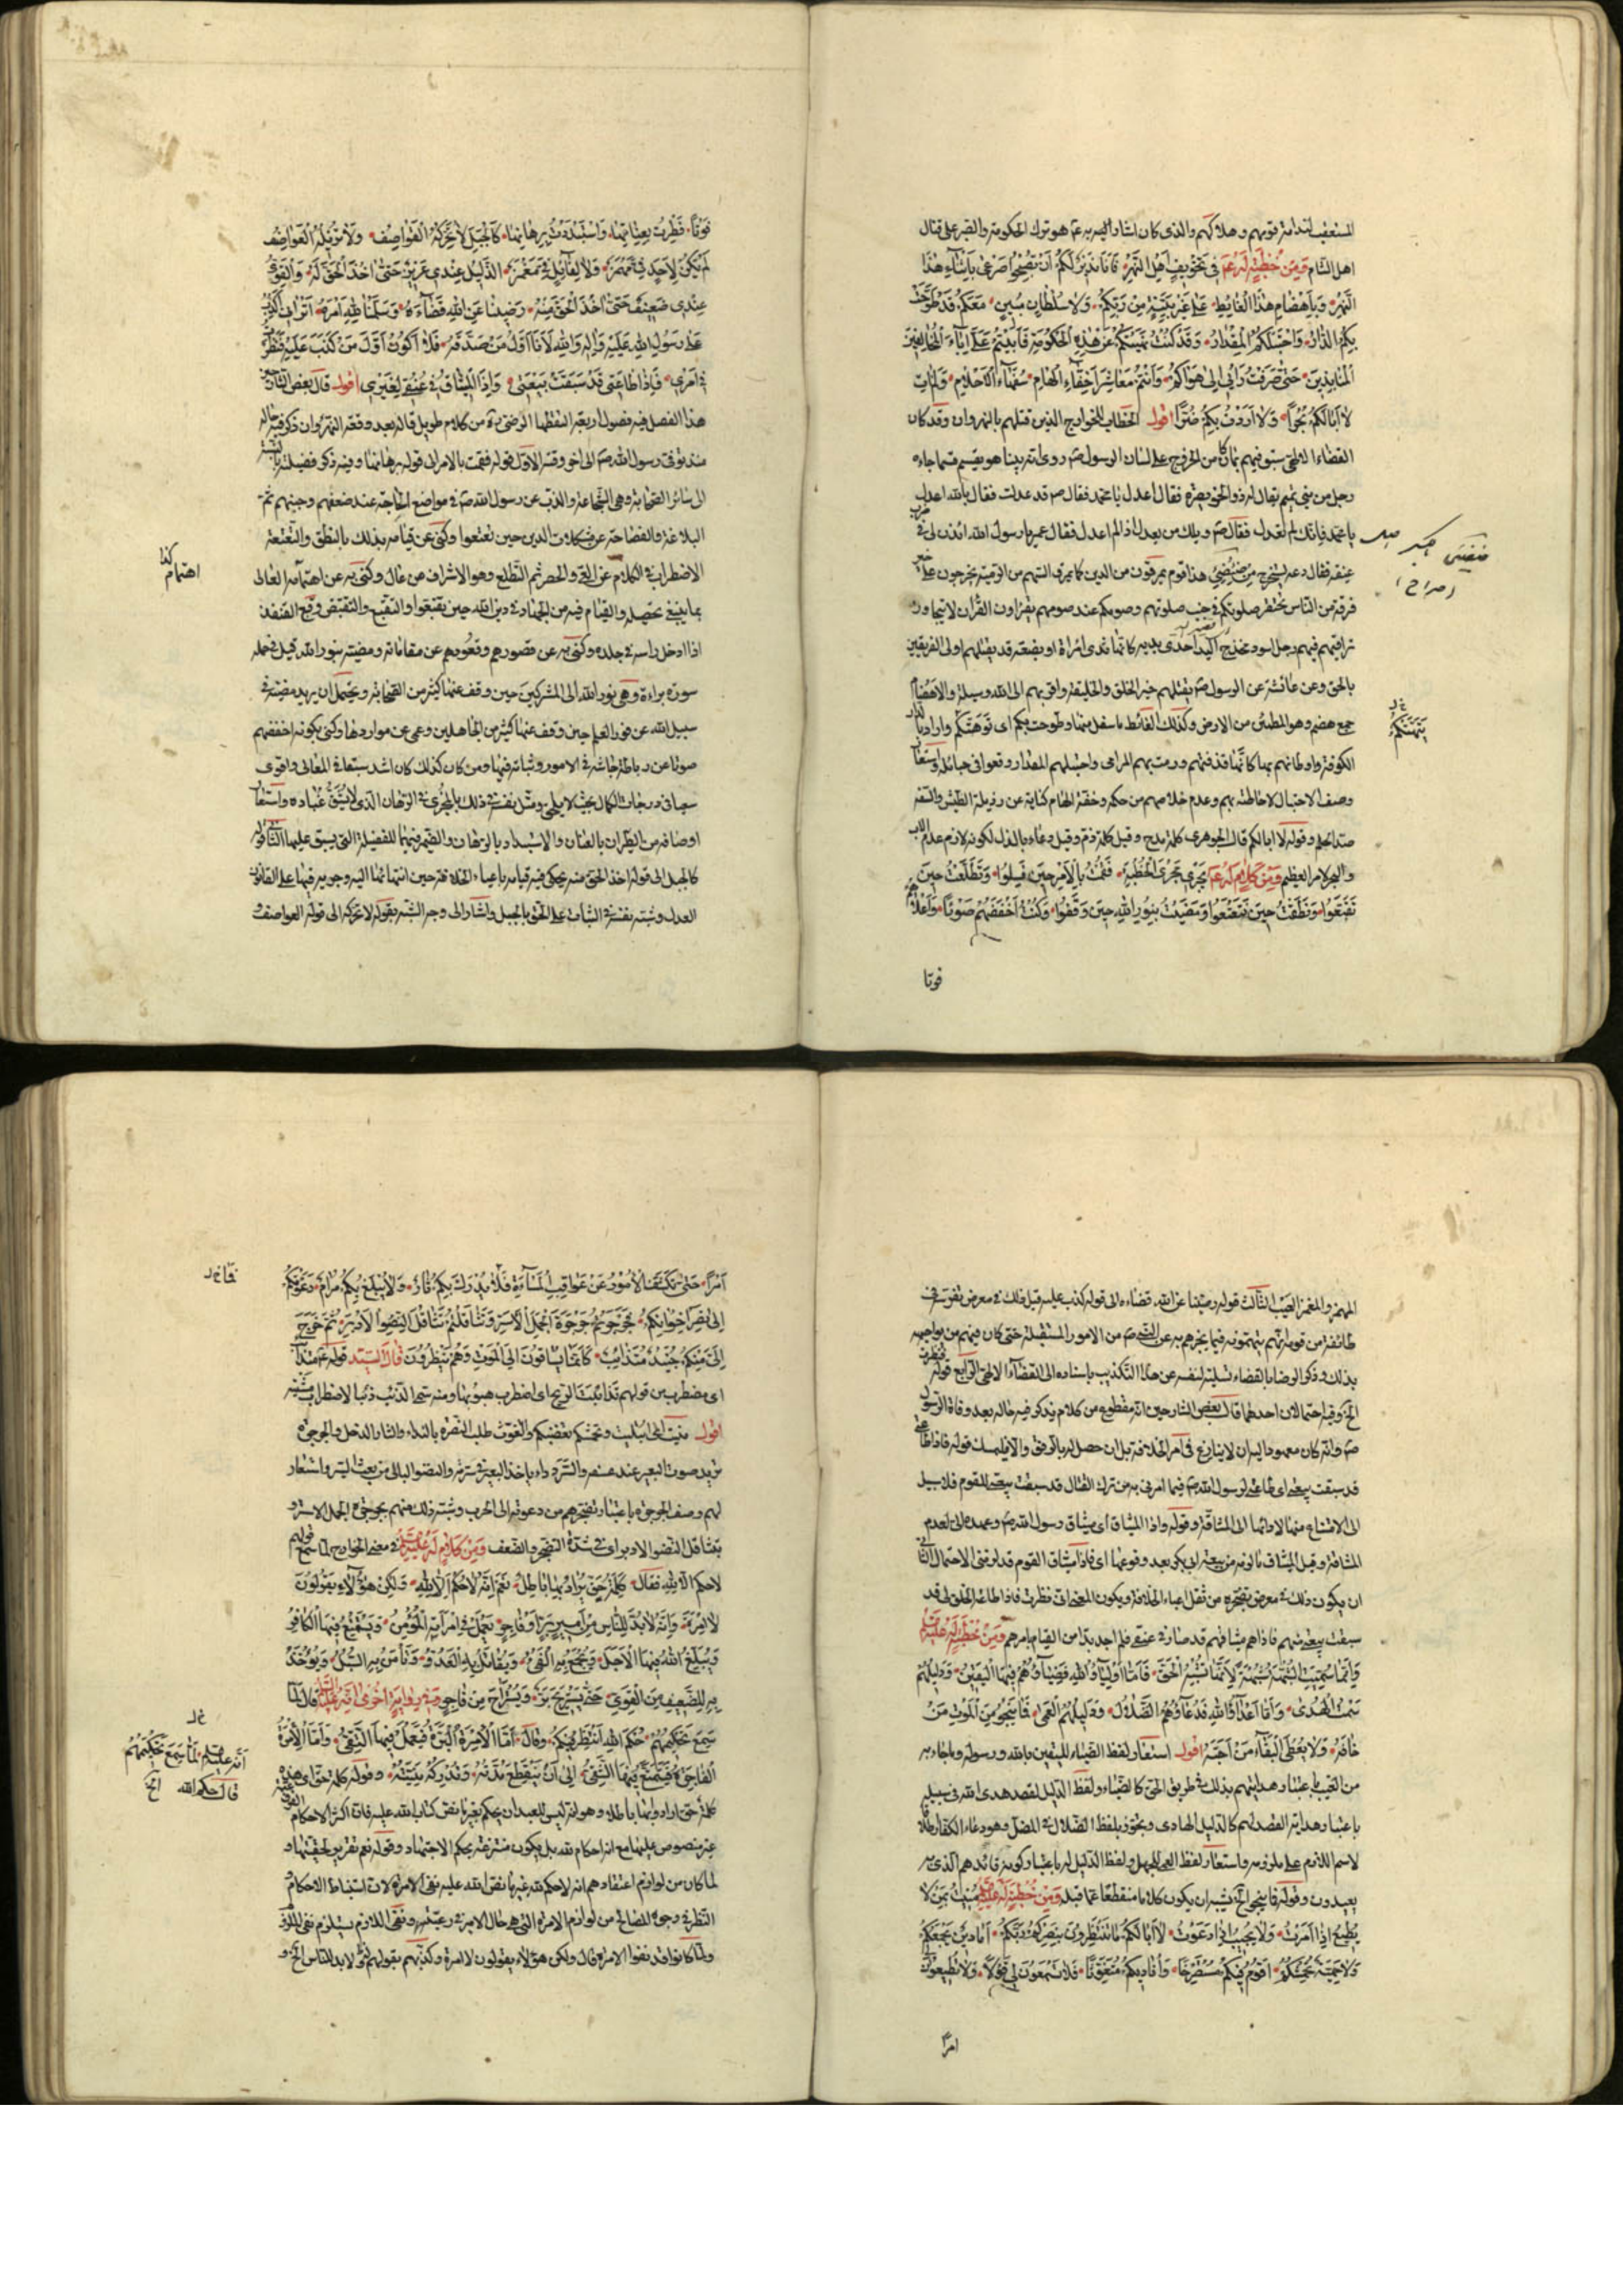 المستعقب لندامة قومهم وهلاكهم والذى كان اشار اليهم به عم هو ترك الحكومة والصبر على قتال
اهل الشام وَمِن خُطبَةٍ لَهُ عَم فى تَخويفِ اَهلِ النَّهرِ فَاَنَا نَذيرُكُم اَن تُصبِحُوا صَرعى بِاَثناءِ هٰذَا
النَّهرِ وَبِاَهضامِ هٰذَا الغائِطِ عَلى غَيرِ بَيِّنَةٍ مِن رَبِّكُم وَلا سُلطانٍ مُبينٍ مَعَكُم قَد طَوَّحَت
بِكُمُ الدّارُ وَاحتَبَلَكُمُ المِقدارُ وَقَد كُنتُ نَهَيتُكُم عَن هٰذِهِ الحُكُومَةِ فَاَبَيتُم عَلَىَّ اِباءَ المُخالِفينَ
المُنابِذينَ حَتّى صَرَفتُ رَأيى اِلى هَواكُم وَاَنتُم مَعاشِرُ اَخِفّاءُ الهامِ سُفَهاءُ الاَحلامِ وَلَم آتِ
لا اَبا لَكُم بُجرًا وَلا اَرَدتُ بِكُم ضُرًّا اقول الخطاب للخوارج الذين قتلهم بالنهروان وقد كان
القضاء الالهى سبق فيهم بما كان من الخروج على لسان الرسول ص روى انه بينا هو يقسم قسما جاءه
رجل من بنى تميم يقال له ذو الخويصرة فقال اعدل يا محمد فقال ص قد عدلت فقال بالله اعدل
يا محمد فانك لم تعدل فقال ص ويلك من يعدل اذا لم اعدل فقال عمر يا رسول الله ائذن لى فى ضرب
عنقه فقال دعه سيخرج من ضئضئ هذا قوم يمرقون من الدين كما يمرق السهم من الرمية يخرجون على خير
فرقة من الناس تحتقر صلوتكم فى جنب صلوتهم وصومكم عند صومهم يقرؤن القران لا يتجاوز
تراقيهم فيهم رجل اسود مخدج اليد احدى يديه كانها ثدى امراة او بضعة قد يقتلهم اولى الفريقين
بالحق وعن عائشة عن الرسول ص يقتلهم خير الخلق والخليقة واقربهم الى الله وسيلة والاهضام
جمع هضم وهو المطمئن من الارض وكذلك الغائط ما سفل منها وطوحت بكم اى توهتكم واراد بالدار
الكوفة واوطانهم بها كانما قذفتهم ورمت بهم المرامى واحتبلهم المقدار وقعوا فى حبائله واستعار
وصف الاحتبال لاحاطته بهم وعدم خلاصهم من حكمه وخفة الهام كناية عن رذيلة الطيش والسفه
ضد الحلم وقوله لا ابا لكم قال الجوهرى كلمة مدح وقيل كلمة ذم وقيل دعاء بالذل لكونه لازم عدم الاب
والبجر الامر العظيم وَمِن كَلامٍ لَهُ عَم يَجرى مَجرَى الخُطبَةِ فَقُمتُ بِالاَمرِ حينَ فَشِلُوا وَتَطَلَّعتُ حينَ
تَقَبَّعُوا وَنَطَقتُ حينَ تَعتَعُوا وَمَضَيتُ بِنُورِ اللهِ حينَ وَقَفُوا وَكُنتُ اَخفَضَهُم صَوتًا وَاَعلاهُم
فوتا
يَتهَمَنَّكُم
فَوتًا فَطِرتُ بِعِنانِها وَاستَبدَدتُ بِرِهانِها كَالجَبَلِ لا تُحَرِّكُهُ القَواصِفُ وَلا تُزيلُهُ العَواصِفُ
لَم يَكُن لِاَحَدٍ فِىَّ مَهمَزٌ وَلا لِقائِلٍ فِىَّ مَغمَزٌ الذَّليلُ عِندى عَزيزٌ حَتّى اخُذَ الحَقَّ لَهُ وَالقَوِىُّ
عِندى ضَعيفٌ حَتّى اخُذَ الحَقَّ مِنهُ رَضينا عَنِ اللهِ قَضاءَهُ وَسَلَّمنا لِلّهِ اَمرَهُ اَتَرانى اَكذِبُ
عَلى رَسُولِ اللهِ عَلَيهِ وَالِهِ وَاللهِ لَاَنَا اَوَّلُ مَن صَدَّقَهُ فَلا اَكُونُ اَوَّلَ مَن كَذَبَ عَلَيهِ فَنَظَرتُ
فى اَمرى فَاِذا طاعَتى قَد سَبَقَت بَيعَتى وَاِذَا الميثاقُ فى عُنُقى لِغَيرى اقول قال بعض الشارحين
هذا الفصل فيه فصول اربعة التقطها الرضى ره من كلام طويل قاله بعد وقعة النهروان ذكر فيه حاله
منذ توفى رسول الله ص الى اخر وقته الاول قوله فقمت بالامر الى قوله برهانها وفيه ذكر فضيلته بالنسبة
الى سائر الصحابة وهى الشجاعة والذب عن رسول الله ص فى مواضع الحاجة عند ضعفهم وجبنهم ثم
البلاغة والفصاحة عن مشكلات الدين حين تعتعوا وكنى عن قيامه بذلك بالنطق والتعتعة
الاضطراب فى الكلام عن العى والحصر ثم التطلع وهو الاشراف من عال وكنى به عن اهتمامه العالى
بما ينبغى تحصيله والقيام فيه من الجهاد فى دين الله حين تقبعوا والتقبع والتقبض وقبع القنفذ
اذا ادخل راسه فى جلده وكنى به عن قصورهم وقعودهم عن مقاماته ومضيته بنور الله قيل فى حمله
سورة براءة وهى نور الله الى المشركين حين وقف عنها كثير من الصحابة ويحتمل ان يريد مضيه فى
سبيل الله عن نور العلم حين وقف عنها كثير من الجاهلين وعمى عن مواردها وكنى بكونه اخفضهم
صوتا عن رباطة جاشه فى الامور وثباته فيها ومن كان كذلك كان اشد سبقا فى المعالى واقوى
سعيا فى درجات الكمال بحيث لا يلحق ومثل نفسه فى ذلك بالمجرى فى الرهان الذى لا يشق غباره واستعار
اوصافه من الطيران بالعنان والاستبداد بالرهان والضمير فيهما للفضيلة التى يسبق عليها الثانى قوله
كالجبل الى قوله اخذ الحق منه يحكى فيه قيامه باعباء الخلافة حين انتهائها اليه وجريه فيها على القانون
العدل وشبه نفسه فى الثبات على الحق بالجبل واشار الى وجه الشبه بقوله لا تحركه الى قوله العواصف و
اهتمام كذا
المهمز والمغمز العيب الثالث قوله رضينا عن الله قضاءه الى قوله كذب عليه قيل ذلك فى معرض تفرس فى
طائفة من قومه انهم يتهمونه فيما يخبرهم به عن النبى ص من الامور المستقبلة حتى كان فيهم من يواجهه
بذلك وذكر الرضا بالقضاء تسلية لنفسه عن هذا التكذيب باسناده الى القضاء الالهى الرابع قوله فنظرت
الخ وفيه احتمالان احدهما قال بعض الشارحين انه مقطوع من كلام يذكر فيه حاله بعد وفاة الرسول
ص وانه كان معهودا اليه ان لا ينازع فى امر الخلافة بل ان حصل له بالرفق والا فليمسك فقوله فاذا طاعتى
قد سبقت بيعتى اى طاعتى لرسول الله ص فيما امرنى به من ترك القتال قد سبقت بيعتى للقوم فلا سبيل
الى الامتناع منها وقوله واذا الميثاق اى ميثاق رسول الله ص وعهده الى بعدم
المشاقة وقيل الميثاق ما لزمه من بيعته ابى بكر بعد وقوعها اى فاذا ميثاق القوم قد لزمنى الاحتمال الثانى
ان يكون ذلك فى معرض تضجره من ثقل اعباء الخلافة ويكون المعنى انى نظرت فاذا طاعة الخلق لى قد
سبقت بيعتى منهم فاذا هم ميثاقهم قد صار فى عنقى فلم اجد بدا من القيام بامرهم وَمِن خُطبَةٍ لَهُ عليه السلام
وَاِنَّما سُمِّيَتِ الشُّبهَةُ شُبهَةً لِاَنَّها تُشبِهُ الحَقَّ فَاَمّا اَولِياءُ اللهِ فَضِياؤُهُم فيهَا اليَقينُ وَدَليلُهُم
سَمتُ الهُدى وَاَمّا اَعداءُ اللهِ فَدُعاؤُهُمُ الضَّلالُ وَدَليلُهُمُ العَمى فَما يَنجُو مِنَ المَوتِ مَن
خافَهُ وَلا يُعطَى البَقاءَ مَن اَحَبَّهُ اقول استعار لفظ الضياء لليقين بالله ورسوله وما جاء به
من الغيب باعتبار هدايتهم بذلك فى طريق الحق كالضياء ولفظ الدليل لقصد هدى الله فى سبيله
باعتبار هداية القصد لهم كالدليل الهادى وتجوز بلفظ الضلال فى المضل وهو دعاء الكفار اطلاقا
لاسم اللازم على ملزومه واستعار لفظ العمى للجهل ولفظ الدليل له باعتبار كونه قائدهم الذى به
يعيدون وقوله فما ينجو الخ يشبه ان يكون كلاما منقطعا عما قبله وَمِن خُطبَةٍ لَهُ عليه السلام مُنيتُ بِمَن لا
يُطيعُ اِذا اَمَرتُ وَلا يُجيبُ اِذا دَعَوتُ لا اَبا لَكُم ما تَنتَظِرُونَ بِنَصرِكُم رَبَّكُم اَما دينٌ يَجمَعُكُم
وَلا حَمِيَّةَ تُحمِشُكُم اَقُومُ فيكُم مُستَصرِخًا وَاُناديكُم مُتَغَوِّثًا فَلا تَسمَعُونَ لى قَولًا وَلا تُطيعُونَ لى
امرًا
اَمرًا حَتّى تَكَشَّفَ الاُمُورُ عَن عَواقِبِ المَساءَةِ فَلا يُدرَكُ بِكُم ثارٌ وَلا يُبلَغُ بِكُم مَرامٌ دَعَوتُكُم
اِلى نَصرِ اِخوانِكُم فَجَرجَرتُم جَرجَرَةَ الجَمَلِ الاَسَرِّ وَتَثاقَلتُم تَثاقُلَ النِّضوِ الاَدبَرِ ثُمَّ خَرَجَ
اِلَىَّ مِنكُم جُنَيدٌ مُتَذائِبٌ كَاَنَّما يُساقُونَ اِلَى المَوتِ وَهُم يَنظُرُونَ قال السيد قوله عم متذائب
اى مضطرب من قولهم تذائبت الريح اى اضطرب هبوبها ومنه سمى الذئب ذئبا لاضطراب مشيته
اقول منيت اى ابتليت وتحمشكم تغضبكم والغوث طلب النصرة بالنداء والثار الذحل والجرجرة
ترديد صوت البعير عند عسفه والسرر داء ياخذ البعير فى سرته والنضو البالى من تعب السير واستعار
لهم وصف الجرجرة باعتبار تضجرهم من دعوته الى الحرب وشبه ذلك منهم بجرجرة الجمل الاسر و
بتثاقل النضو الادبر اى فى شدة التضجر والضعف وَمِن كَلامٍ لَهُ عليه السلام فى معنى الخوارج لما سمع قولهم
لا حكم الا لله فقال كَلِمَةُ حَقٍّ يُرادُ بِها باطِلٌ نَعَم اِنَّهُ لا حُكمَ اِلّا لِلّهِ وَلٰكِن هٰؤُلاءِ يَقُولُونَ
لا اِمرَةَ وَاِنَّهُ لا بُدَّ لِلنّاسِ مِن اَميرٍ بَرٍّ اَو فاجِرٍ يَعمَلُ فى اِمرَتِهِ المُؤمِنُ وَيَستَمتِعُ فيهَا الكافِرُ
وَيُبَلِّغُ اللهُ فيهَا الاَجَلَ وَيُجمَعُ بِهِ الفَىءُ وَيُقاتَلُ بِهِ العَدُوُّ وَتَأمَنُ بِهِ السُّبُلُ وَيُؤخَذُ
بِهِ لِلضَّعيفِ مِنَ القَوِىِّ حَتّى يَستَريحَ بَرٌّ وَيُستَراحَ مِن فاجِرٍ وَفى رِوايَةٍ اُخرى اَنَّهُ عليه السلام قال لَمّا
سَمِعَ تَحكيمَهُم حُكمَ اللهِ اَنتَظِرُ فيكُم وَقالَ اَمَّا الاِمرَةُ البَرَّةُ فَيَعمَلُ فيهَا التَّقِىُّ وَاَمَّا الاِمرَةُ
الفاجِرَةُ فَيَتَمَتَّعُ فيهَا الشَّقِىُّ اِلى اَن تَنقَطِعَ مُدَّتُهُ وَتُدرِكَهُ مَنِيَّتُهُ وقوله كلمة حق اى هذه
كلمة حق ارادوا بها باطلا وهو انه ليس للعبد ان يحكم بغير ما نص كتاب الله عليه فان اكثر الاحكام الفرعية
غير منصوص عليها مع انها احكام لله بل يكون منتزعة بحكم الاجتهاد وقوله نعم تقرير لحقيتها و
لما كان من لوازم اعتقادهم انه لا حكم لله غير ما نص الله عليه نفى الامرة لان استنباط الاحكام
النظر فى وجوه المصالح من لوازم الامرة التى هى حال الامير فى رعيته ونفى اللازم يستلزم نفى الملزوم
ولما كانوا قد نفوا الامرة قال ولكن هؤلاء يقولون لا امرة وكذبهم بقولهم لا بد للناس الخ و
انه عليه السلام لما سمع تحكيمهم
قال حكم الله الخ